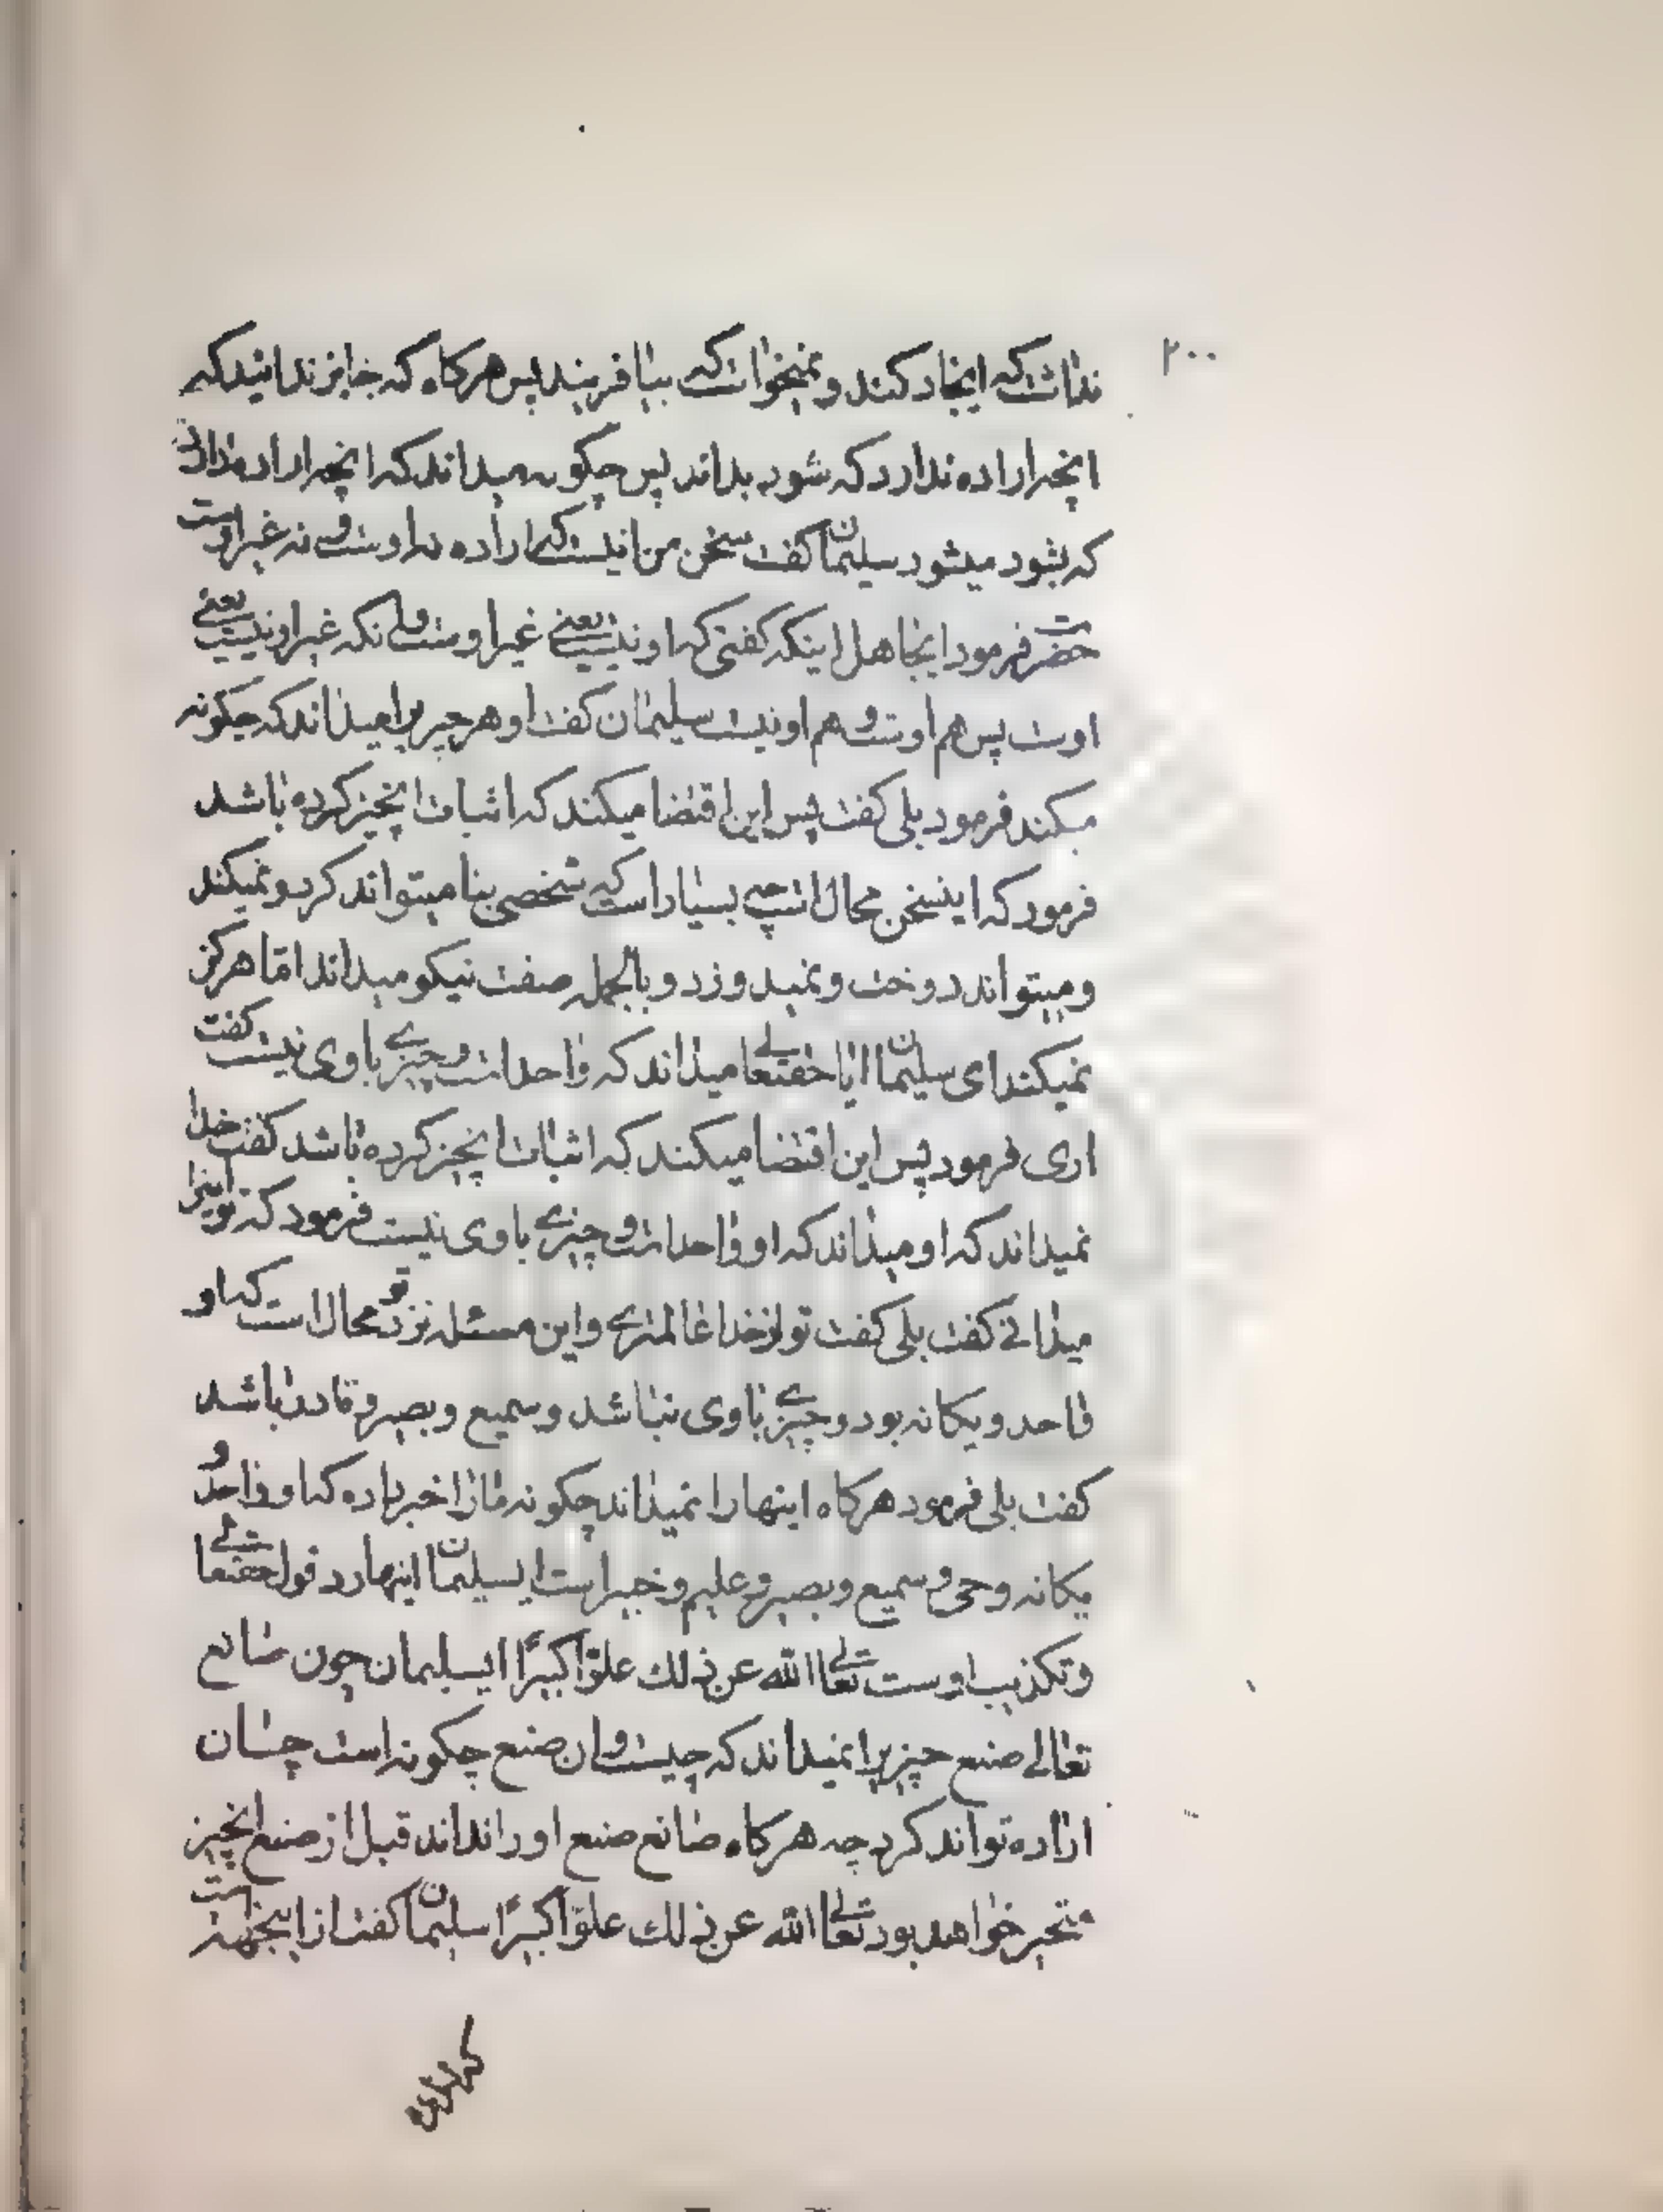 ۲۰۰
نداشت که ایجاد کند و نمیخواست که بیافریند پس هرکاه که جایز ندانید که
انچه اراده ندارد که شود بداند پس چکونه میداند که انچه اراده دارد
که بشود میشود سلیمان کفت سخن من انیست که اراده نه اوست و نه غیر اوست
حضرت فرمود ایجاهل اینکه کفتی که او نیست یعنی غیر اوست و انکه غیر او نیست یعنی
اوست پس هم اوست و هم او نیست سلیمان کفت او هر چیزیرا میداند که چکونه
میکند فرمود بلی کفت پس این اقتضا میکند که اثبات انچیز کرده باشد
فرمود که اینسخن محال است چه بسیار است که شخصی بنا میتواند کرد و نمیکند
و میتواند دوخت و نمیدوزد و بالجمله صفت نیکو میداند اما هرکز
نمیکند ای سلیمان ایا حقتعالی میداند که واحد است و چیزے باوی نیست کفت
اری فرمود پس این اقتضا میکند که اثبات انچیز کرده باشد کفت خدا
نمیداند که او میداند که او واحد است و چیزے باوی نیست فرمود که تو اینرا
میدانے کفت بلی کفت تو از خدا عالمترے و این مسئله نزد تو محال است که او
واحد و یکانه بود و چیزے باوی نباشد و سمیع و بصیر و قادر باشد
کفت بلی فرمود هرکاه اینها را نمیداند چکونه مارا خبر داده که او واحد و
یکانه و حی و سمیع و بصیر و علیم و خبیر است ایسلیمان اینها رد قول حقتعالی
و تکذیب اوست تعالی الله عن ذلك علوّا کبیرًا ایسلیمان چون صانع
تعالی صنع چیزیرا نمیداند که چیست و ان صنع چکونه است چسان
اراده تواند کرد چه هرکاه صانع صنع او را نداند قبل از صنع انچیز
متحیر خواهد بود تعالی الله عن ذلك علوّا کبیرًا سلیمان کفت از اینجهت است
که اراده